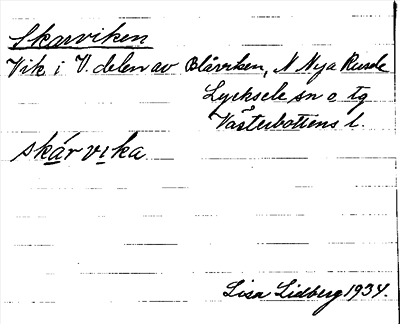 Skarviken
Vik i V. delen av Blåviken, N Nya Rusele
Lycksele sn o tg
Västerbottens l.
skár vika
Lisa Lidberg 1934.